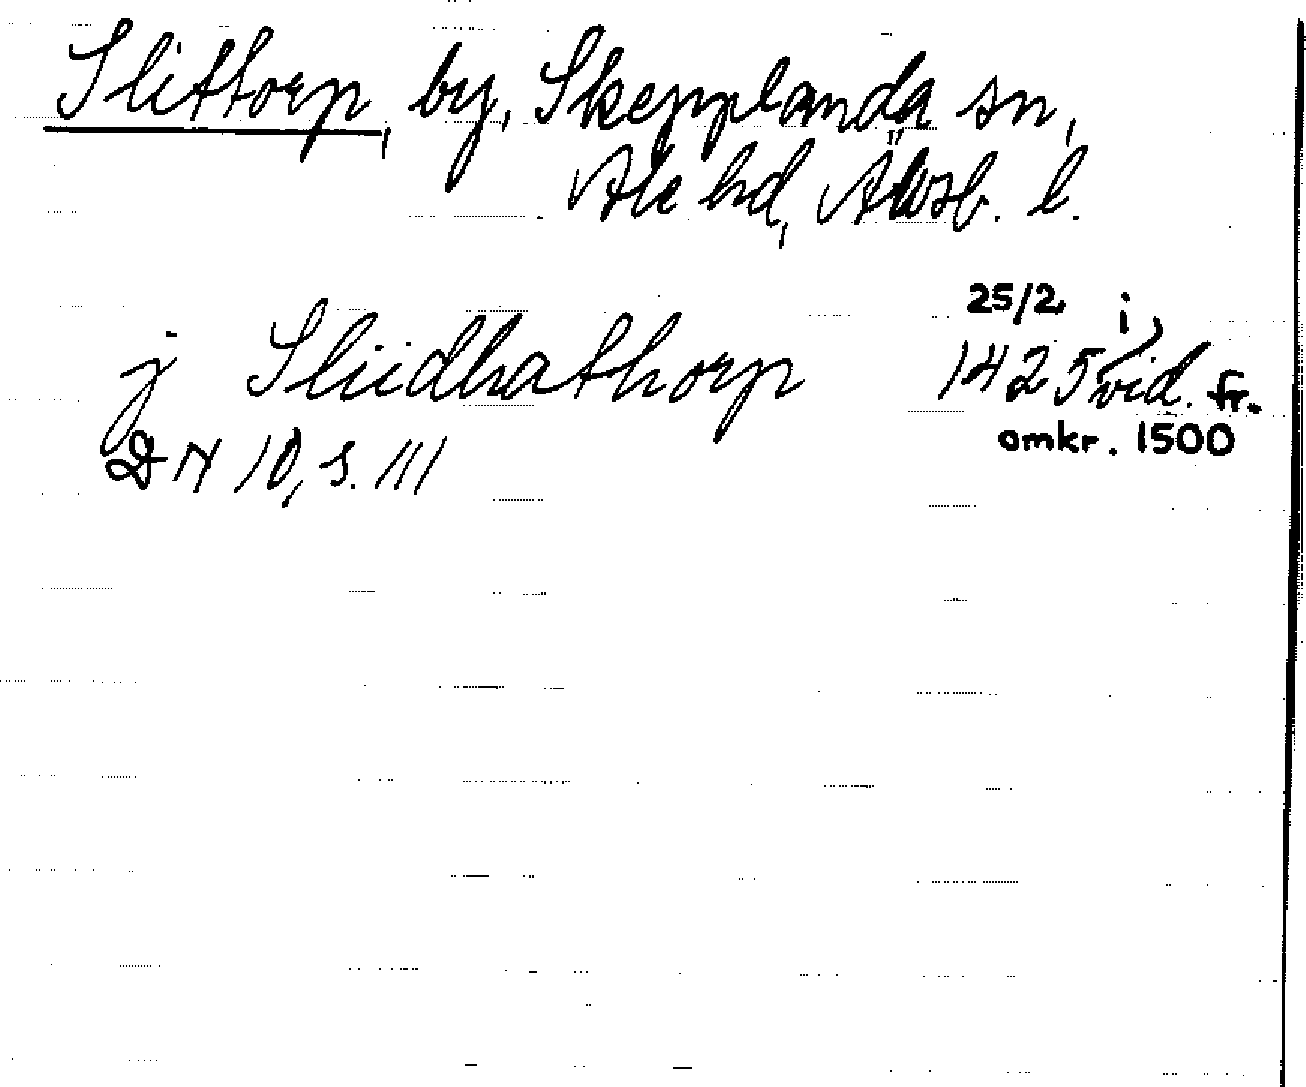 Slittorp, by, Skepplanda sn,
Ale hd, Älvsb. l.
j Sliidhathorp 25/2 1425 i vid. fr. omkr. 1500
DN 10, s. 111